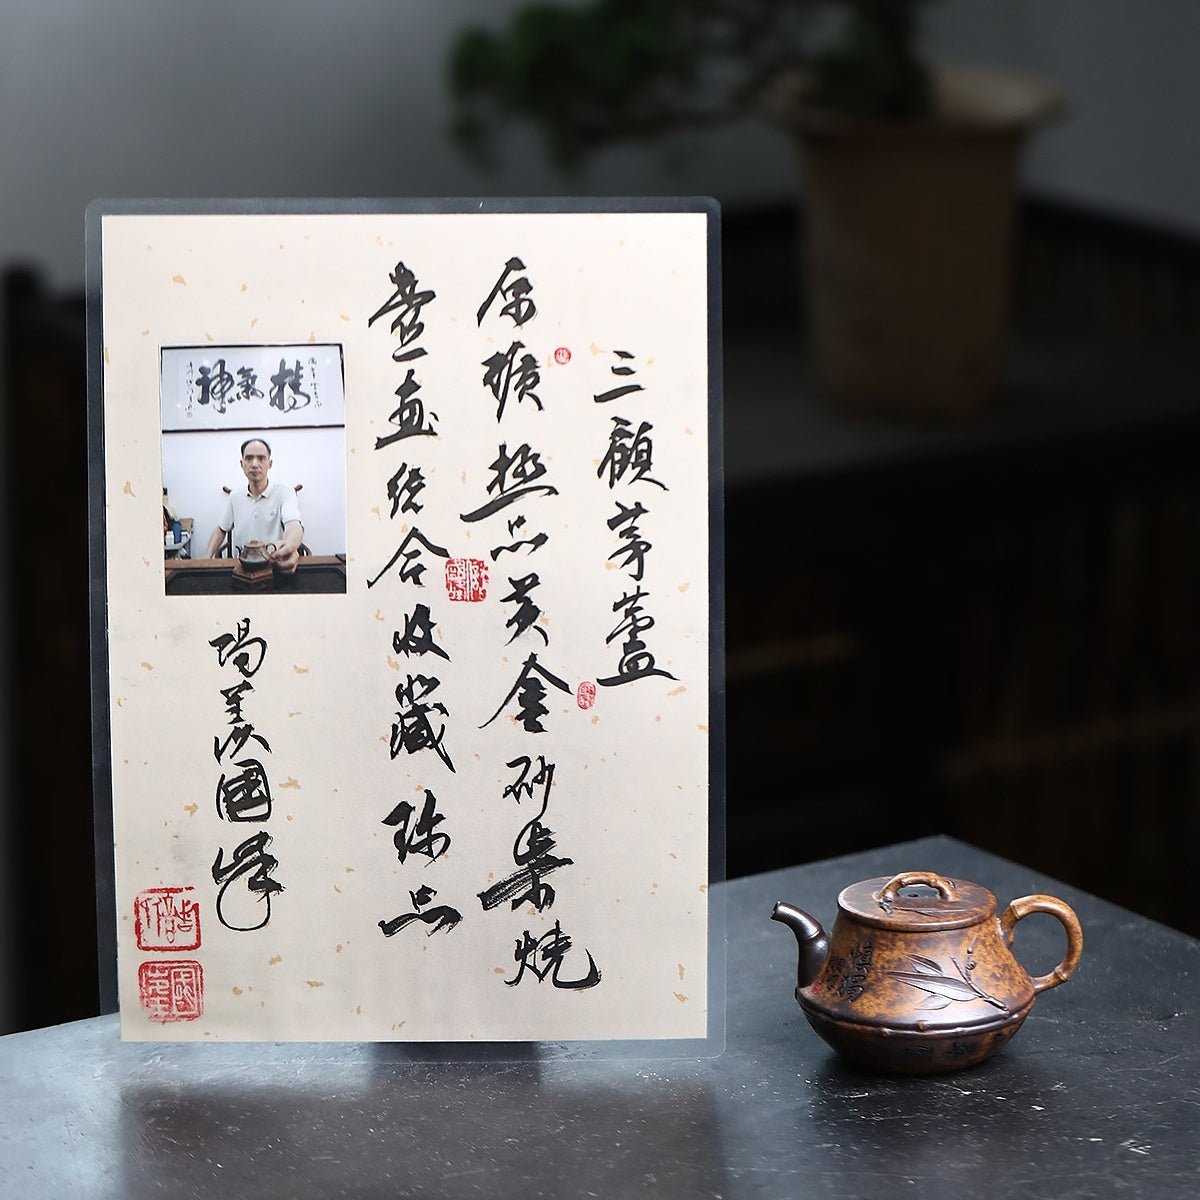 三顧茅蘆
原礦極品黃金砂柴燒
壺畫結合收藏珍品
陽羨國峰
精氣神